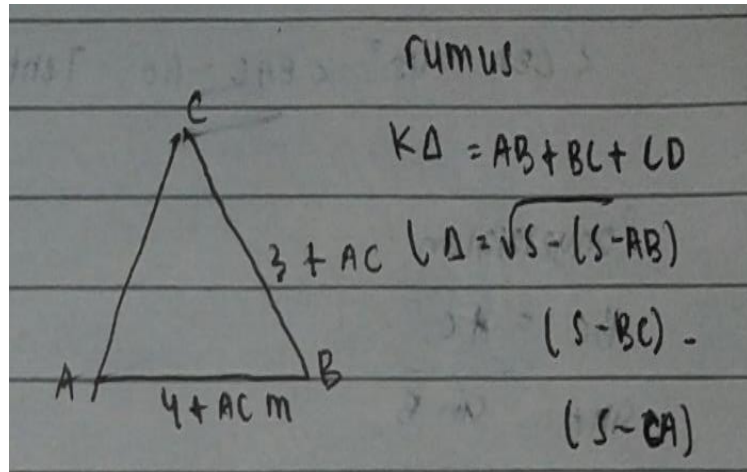 rumus
C
KΔ = AB + BC + CD
3 + AC
LΔ = √S - (S - AB)
(S - BC) -
(S - CA)
A
B
4 + AC m